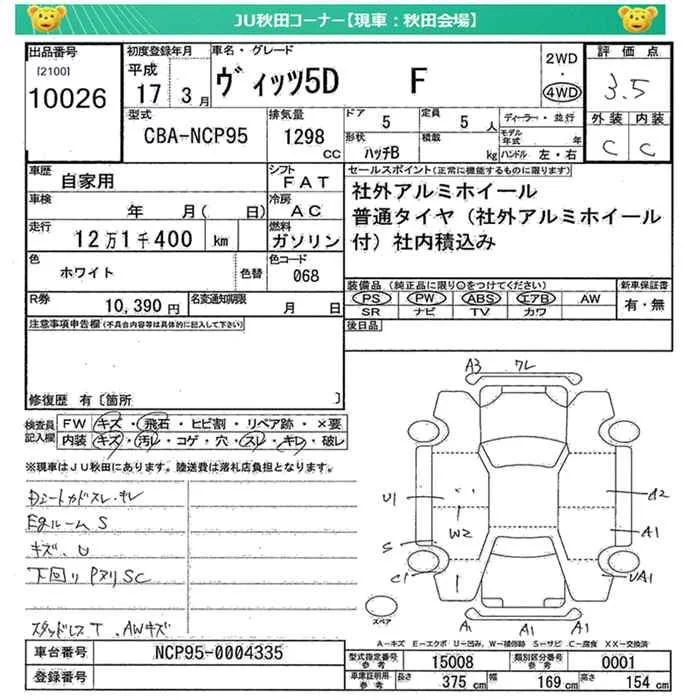 JU秋田コーナー【現車：秋田会場】
出品番号
[2100]
10026
初度登録年月
平成
17 3月
車名・グレード
ヴィッツ5D F
2WD
・
4WD
評価点
3.5
外装 内装
C C
型式
CBA-NCP95
排気量
1298
CC
ドア 5
定員 5 人
形状 ハッチB
積載 kg
ディーラー・並行
モデル年式 年
ハンドル 左・右
車歴 自家用
シフト FAT
車検 年 月( 日)
冷房 AC
走行 12万1千400 km
燃料 ガソリン
色 ホワイト 色替
色コード 068
R券 10,390円
名変通知期限 月 日
セールスポイント(正常に機能するものに限ります)
社外アルミホイール
普通タイヤ（社外アルミホイール
付）社内積込み
装備品（純正品に限り○をつけてください）
新車保証書
PS PW ABS エアB AW
SR ナビ TV カワ
有・無
後日品
注意事項申告欄(不具合内容等は具体的に記入して下さい)
修復歴 有〔箇所 〕
検査員記入欄
FW キズ・飛石・ヒビ割・リペア跡・×要
内装 キズ・汚レ・コゲ・穴・スレ・キレ・破レ
※現車はJU秋田にあります。陸送費は落札店負担となります。
Dシートカドスレ・キレ
Egルーム S
キズ、U
下回り Pヌリ SC
スタッドレスT.AWキズ
A3 ワレ
U1
W2
A2
A1
S
C1
UA1
A1 A1 A1
スペア
A－キズ E－エクボ U－凹み、W－補修跡 S－サビ C－腐食 XX－交換済
車台番号 NCP95-0004335
登録番号
型式指定番号参考 15008
類別区分番号参考 0001
車庫証明用参考 長さ 375 cm 幅 169 cm 高さ 154 cm